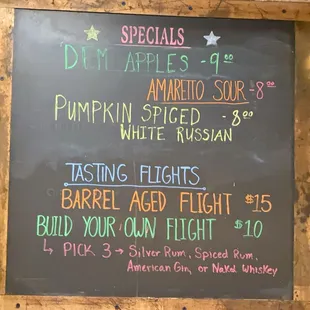 SPECIALS
DEM APPLES - 9.00
AMARETTO SOUR - 8.00
PUMPKIN SPICED - 8.00
WHITE RUSSIAN
TASTING FLIGHTS
BARREL AGED FLIGHT $15
BUILD YOUR OWN FLIGHT $10
↳ PICK 3 → Silver Rum, Spiced Rum,
American Gin, or Naked Whiskey